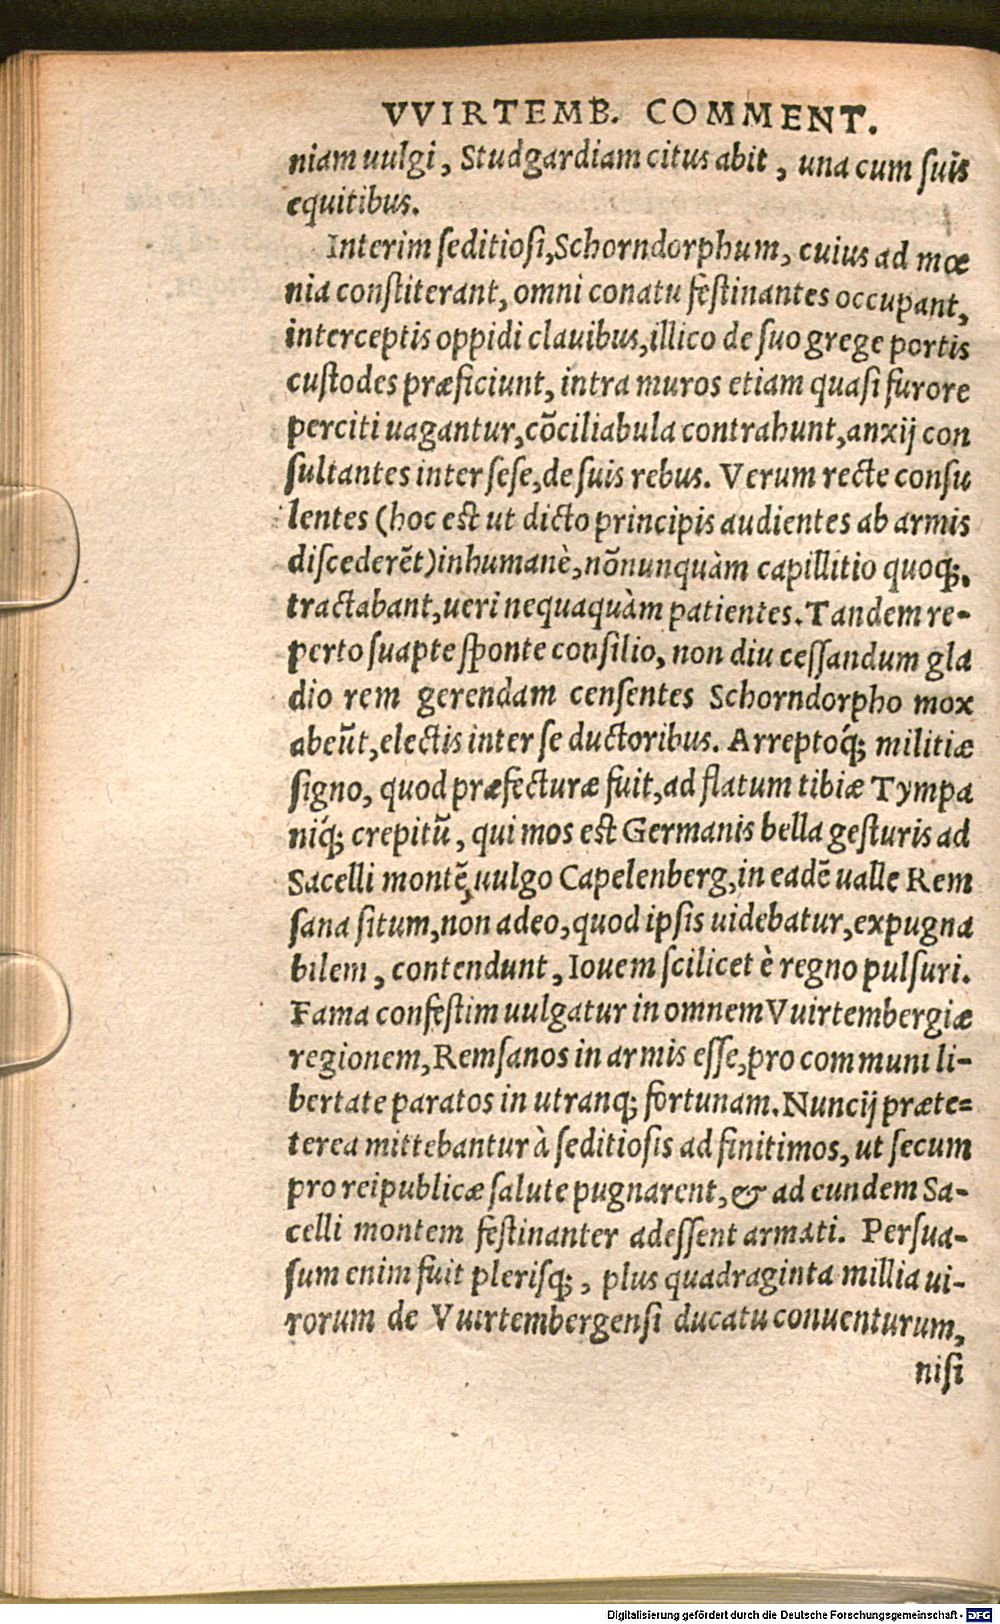 VVIRTEMB. COMMENT.
niam uulgi, Studgardiam citus abit, una cum suis
equitibus.
Interim seditiosi, Schorndorphum, cuius ad mœ
nia constiterant, omni conatu festinantes occupant,
interceptis oppidi clauibus, illico de suo grege portis
custodes præficiunt, intra muros etiam quasi furore
perciti uagantur, cōciliabula contrahunt, anxij con
sultantes inter sese, de suis rebus. Verum recte consu
lentes (hoc est ut dicto principis audientes ab armis
discederēt) inhumanè, nōnunquàm capillitio quoq;.
tractabant, ueri nequaquàm patientes. Tandem re-
perto suapte sponte consilio, non diu cessandum gla
dio rem gerendam censentes Schorndorpho mox
abeūt, electis inter se ductoribus. Arreptoq́; militiæ
signo, quod præfecturæ fuit, ad flatum tibiæ Tympa
niq́; crepitū, qui mos est Germanis bella gesturis ad
Sacelli montē, uulgo Capelenberg, in eadē ualle Rem
sana situm, non adeo, quod ipsis uidebatur, expugna
bilem, contendunt, Iouem scilicet è regno pulsuri.
Fama confestim uulgatur in omnem Vuirtembergiæ
regionem, Remsanos in armis esse, pro communi li-
bertate paratos in utranq; fortunam. Nuncij præte-
terea mittebantur à seditiosis ad finitimos, ut secum
pro reipublicæ salute pugnarent, & ad eundem Sa-
celli montem festinanter adessent armati. Persua-
sum enim fuit plerisq;, plus quadraginta millia ui-
rorum de Vuirtembergensi ducatu conuenturum,
nisi
Digitalisierung gefördert durch die Deutsche Forschungsgemeinschaft - DFG